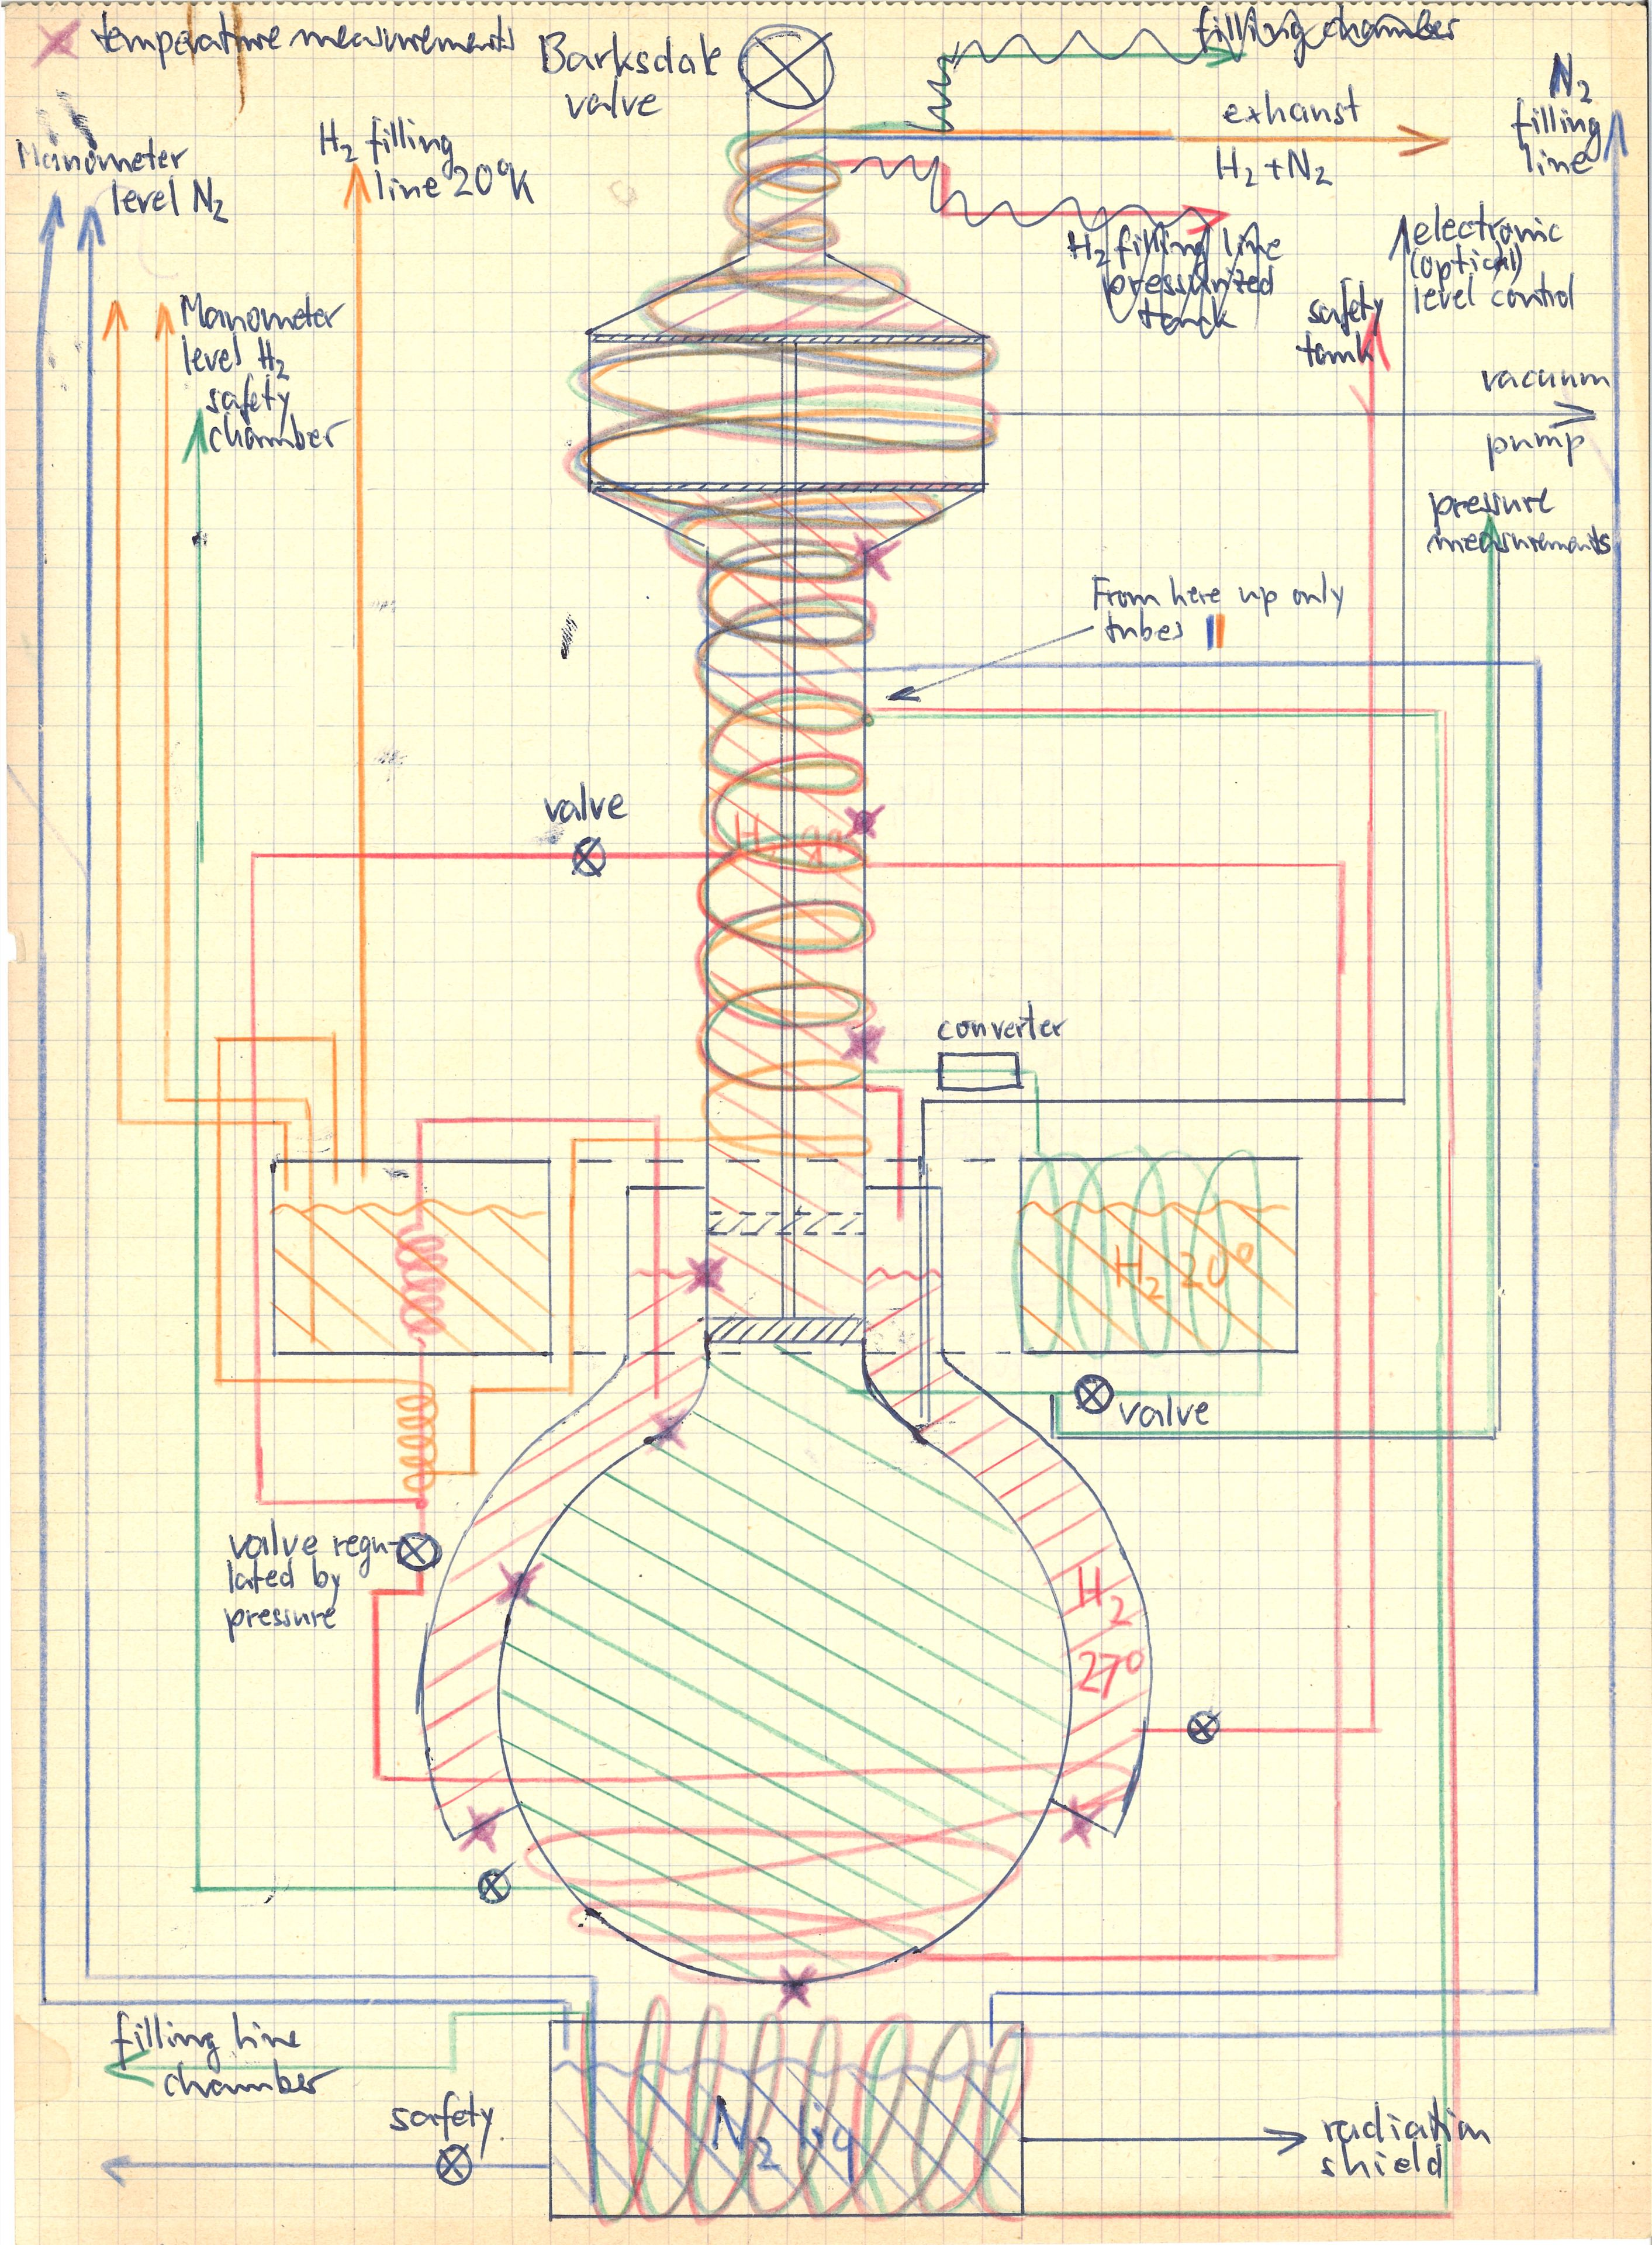 temperature measurements
Barksdale
valve
filling chamber
exhaust
H₂ + N₂
N₂
filling
line
Manometer
level N₂
H₂ filling
line 20°K
H₂ filling line
pressurized
tank
electronic
(optical)
level control
safety
tank
Manometer
level H₂
safety
chamber
vacuum
pump
pressure
measurements
From here up only
tubes
valve
H
converter
H₂ 20°
valve
valve regu-
lated by
pressure
H₂
27°
filling line
chamber
safety
N₂ liq
radiation
shield